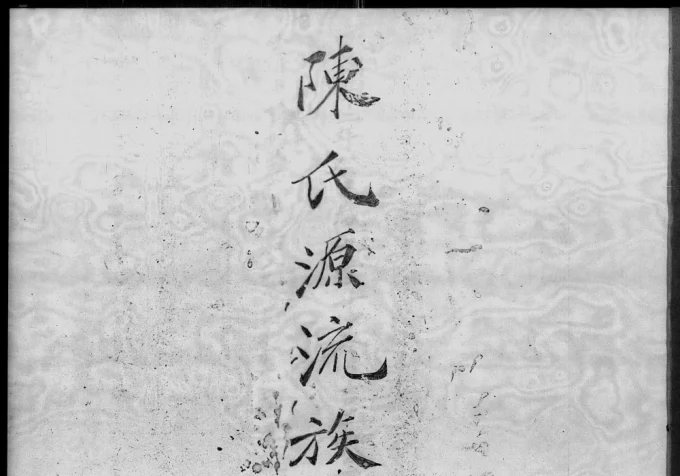 陳氏源流族